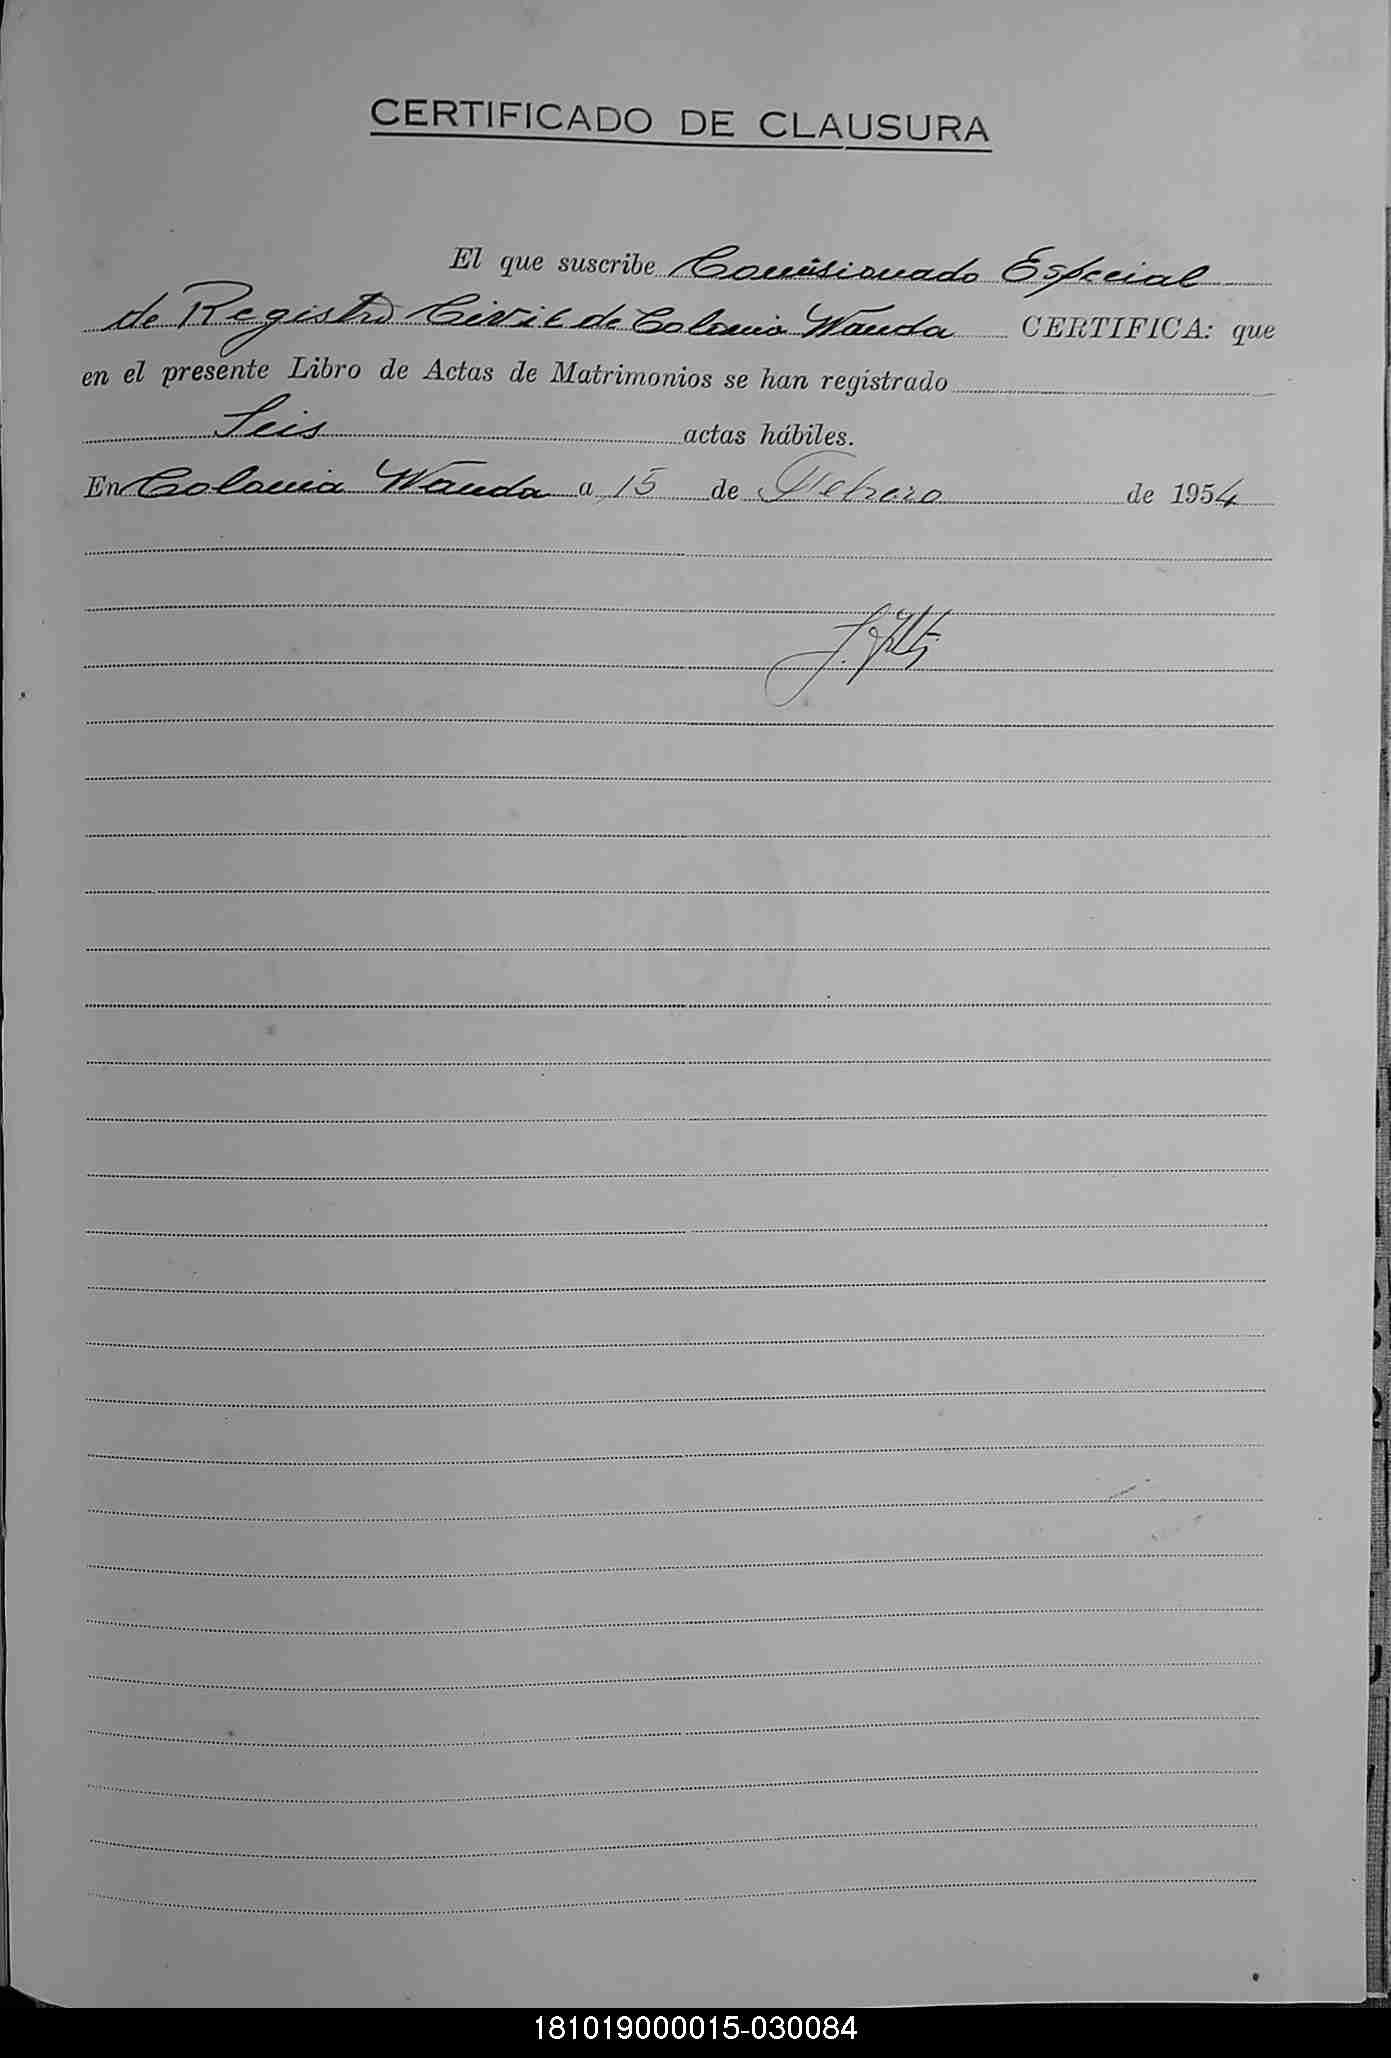 CERTIFICADO DE CLAUSURA
El que suscribe Comisionado Especial
de Registro Civil de Colonia Wanda CERTIFICA: que
en el presente Libro de Actas de Matrimonios se han registrado
Seis actas hábiles.
En Colonia Wanda a 15 de Febrero de 1954
181019000015-030084